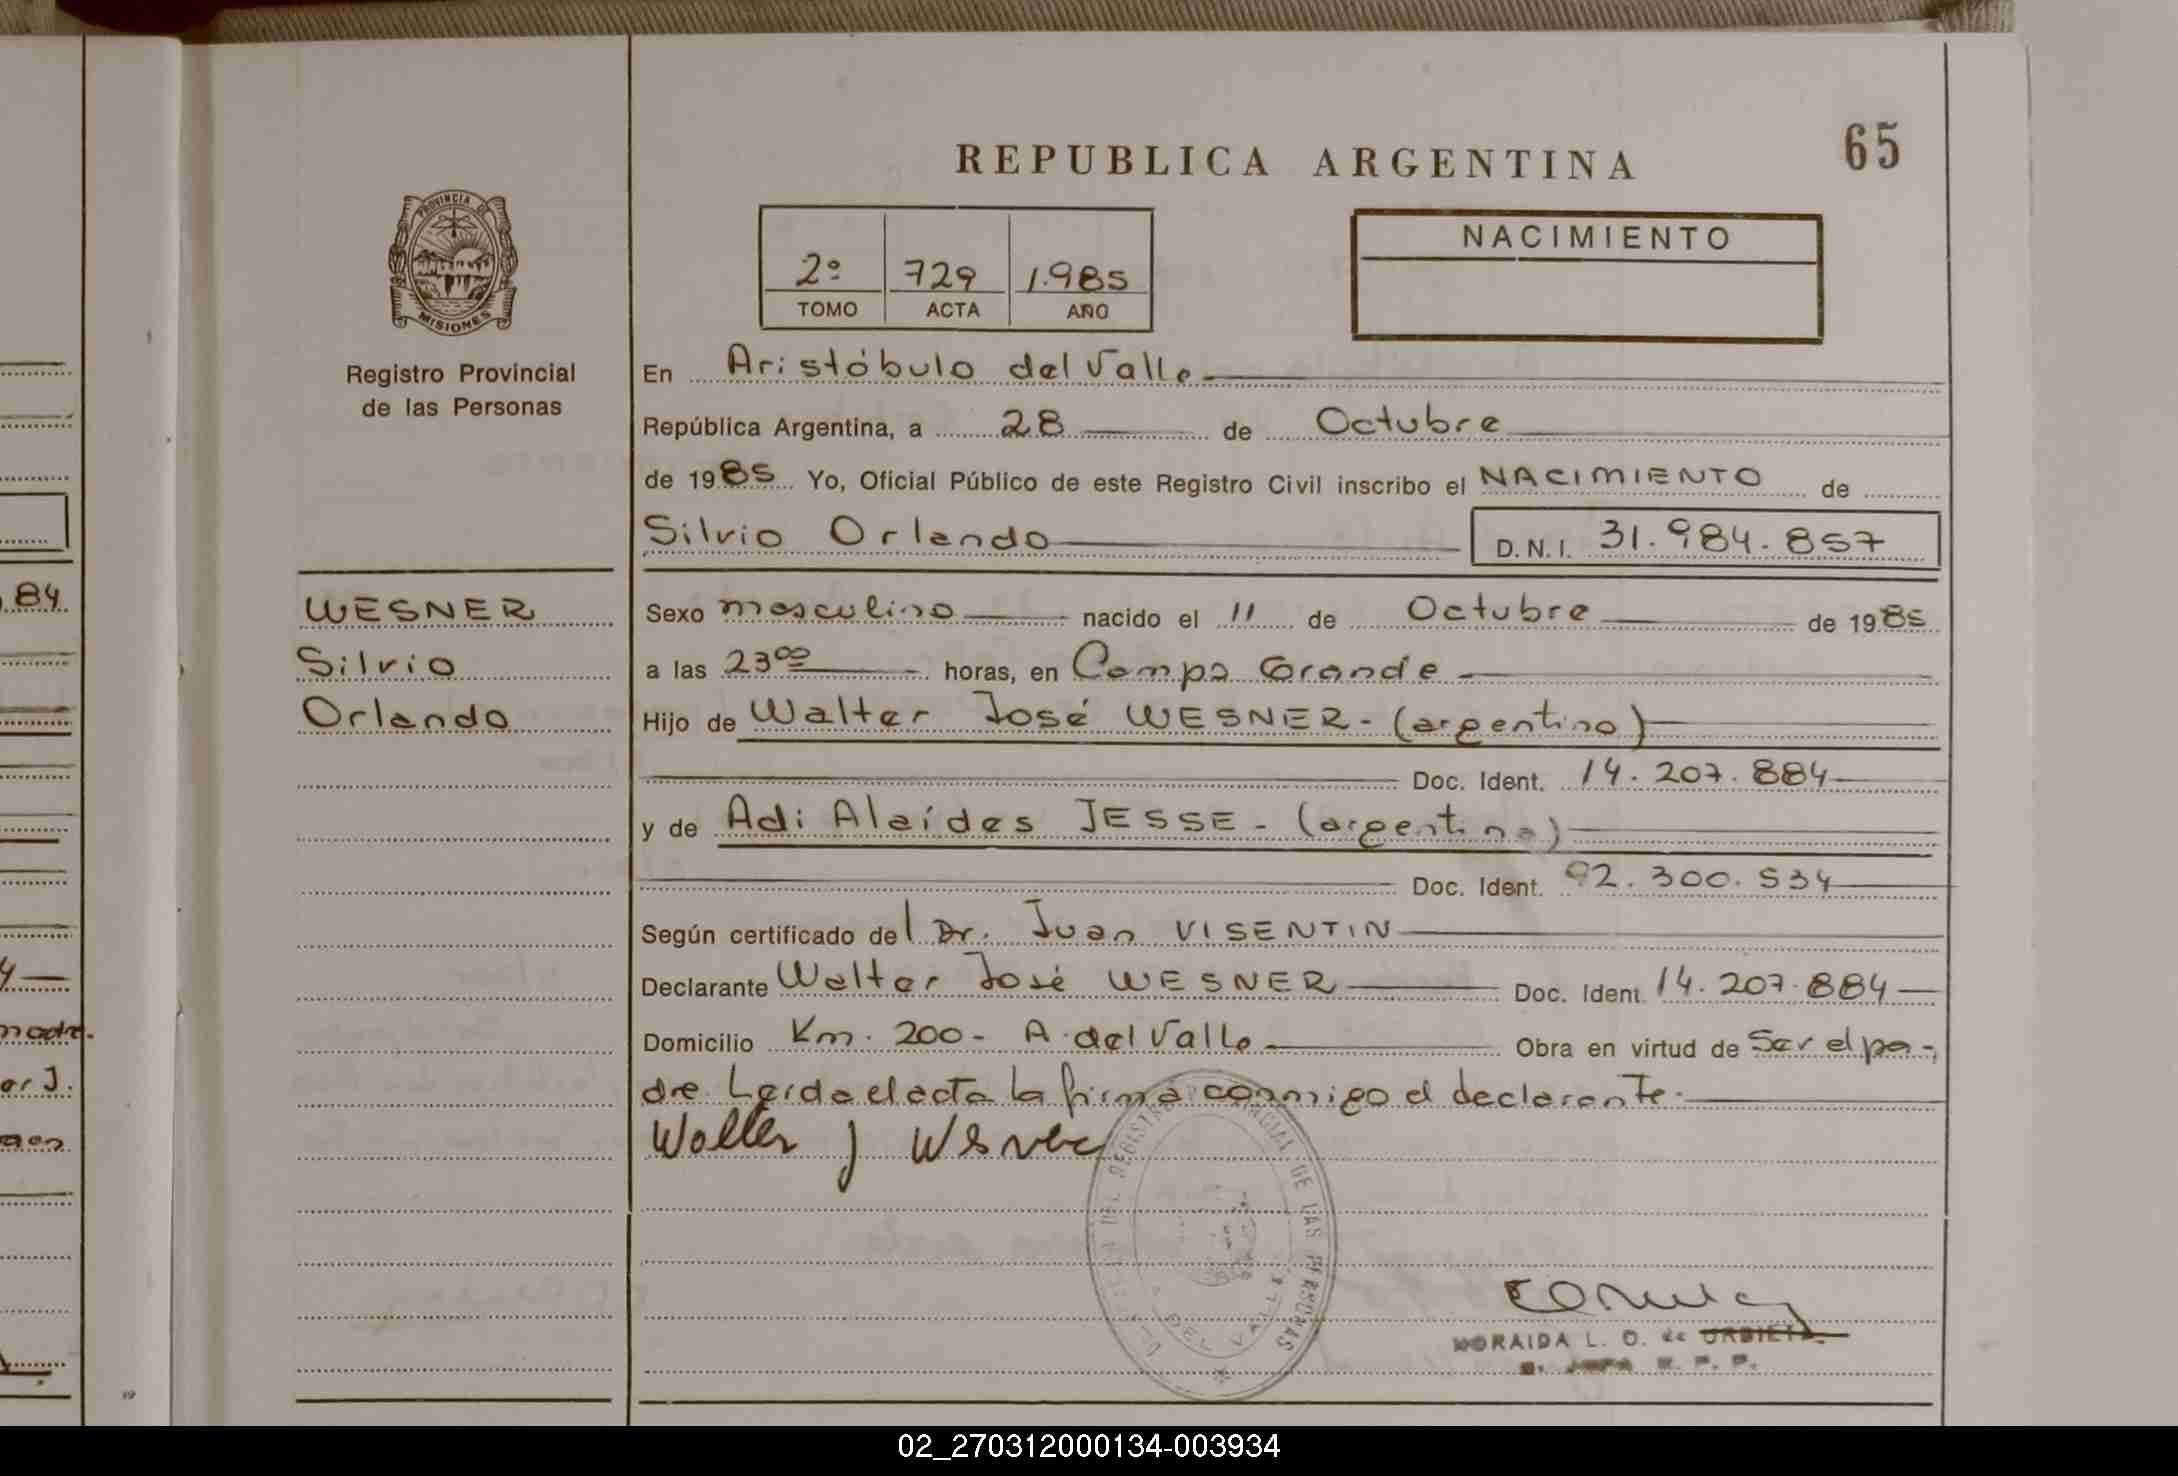 65
REPUBLICA ARGENTINA
PROVINCIA DE
MISIONES
Registro Provincial
de las Personas
2º 729 1.985
TOMO ACTA AÑO
NACIMIENTO
En Aristóbulo del Valle
República Argentina, a 28 de Octubre
de 1985 Yo, Oficial Público de este Registro Civil inscribo el NACIMIENTO de
Silvio Orlando D.N.I. 31.984.857
WESNER
Silvio
Orlando
Sexo masculino nacido el 11 de Octubre de 1985
a las 23⁰⁰ horas, en Campo Grande
Hijo de Walter José WESNER - (argentino)
Doc. Ident. 14.207.884
y de Adi Alaídes JESSE - (argentina)
Doc. Ident. 92.300.534
Según certificado del Dr. Juan VISENTIN
Declarante Walter José WESNER Doc. Ident. 14.207.884
Domicilio Km. 200 - A. del Valle Obra en virtud de Ser el pa-
dre Leída el acta la firma conmigo el declarante.
Walter J Wesner
DEL REGISTRO PROVINCIAL DE LAS PERSONAS
DEL VALLE
NORAIDA L. O. de URBIETA
84
madre.
or J.
02_270312000134-003934